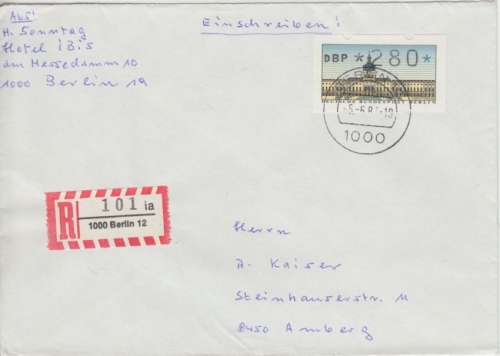 Abs!
H. Sonntag
Hotel iBiS
am Messedamm 10
1000 Berlin 19
Einschreiben!
DBP *280*
DEUTSCHE BUNDESPOST BERLIN
1000
R 101 ia
1000 Berlin 12
Herrn
A. Kaiser
Steinhauserstr. 11
8450 Amberg